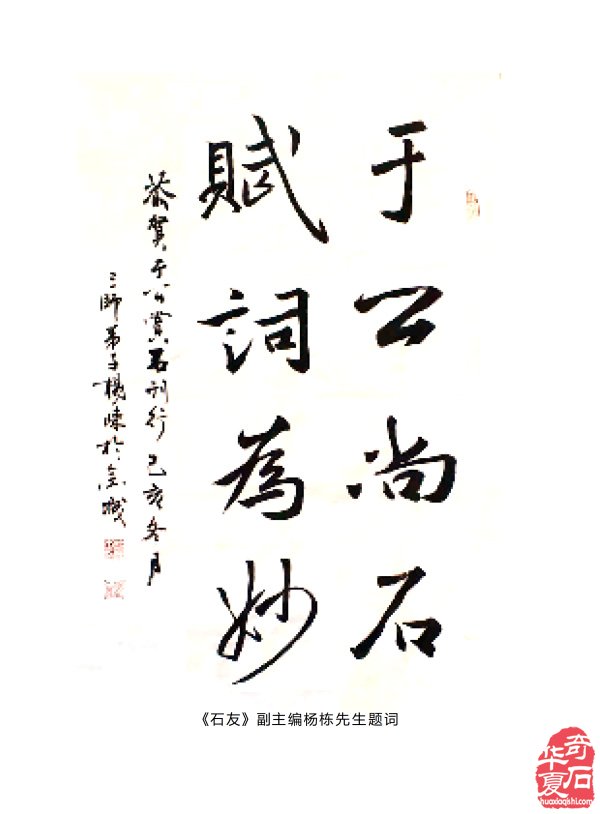 于公尚石
賦詞為妙
恭賀于公賞石刊行己亥冬月
三師弟子楊棟於金城
《石友》副主编杨栋先生题词
华夏奇石
huaxiaqishi.com